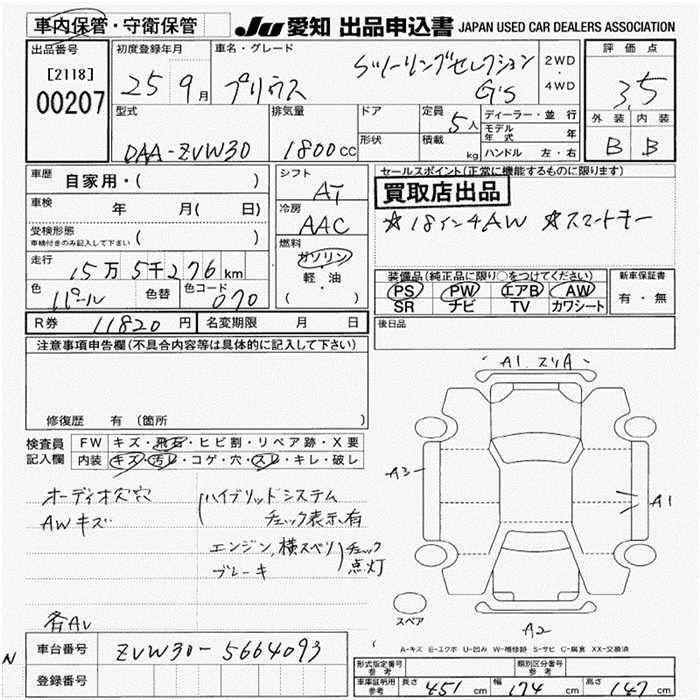 車内保管・守衛保管
JU 愛知 出品申込書 JAPAN USED CAR DEALERS ASSOCIATION
出品番号
[2118]
00207
初度登録年月
25 9月
車名・グレード
プリウス
Sツーリングセレクション
G's
2WD
・
4WD
評価点
3.5
外装 内装
B B
型式
DAA-ZVW30
排気量
1800cc
ドア
形状
定員
5人
積載
kg
ディーラー・並行
モデル年式 年
ハンドル 左・右
車歴 自家用・( )
車検 年 月( 日)
受検形態
車検付きのみ記入して下さい ( )
走行 15万5千276km
色 パール 色替 色コード 070
シフト
AT
冷房
AAC
燃料
ガソリン
軽・油
( )
セールスポイント(正常に機能するものに限ります)
買取店出品
☆18インチAW ☆スマートキー
装備品(純正品に限り○をつけてください)
PS PW エアB AW
SR ナビ TV カワシート
新車保証書
有・無
R券 11820円 名変期限 月 日
後日品
注意事項申告欄(不具合内容等は具体的に記入して下さい)
修復歴 有 (箇所 )
検査員記入欄
FW キズ・飛石・ヒビ割・リペア跡・X要
内装 キズ・汚レ・コゲ・穴・スレ・キレ・破レ
オーディオ欠穴
AWキズ
ハイブリッドシステム
チェック表示有
エンジン,横スベリ
ブレーキ
チェック
点灯
A1.スリA
A3
A1
A2
スペア
A-キズ E-エクボ U-凹み W-補修跡 S-サビ C-腐食 XX-交換済
各AU
N
車台番号 ZVW30-5664093
登録番号
形式指定番号
参考
類別区分番号
参考
車庫証明用
参考
長さ 451cm 幅 174cm 高さ 147cm